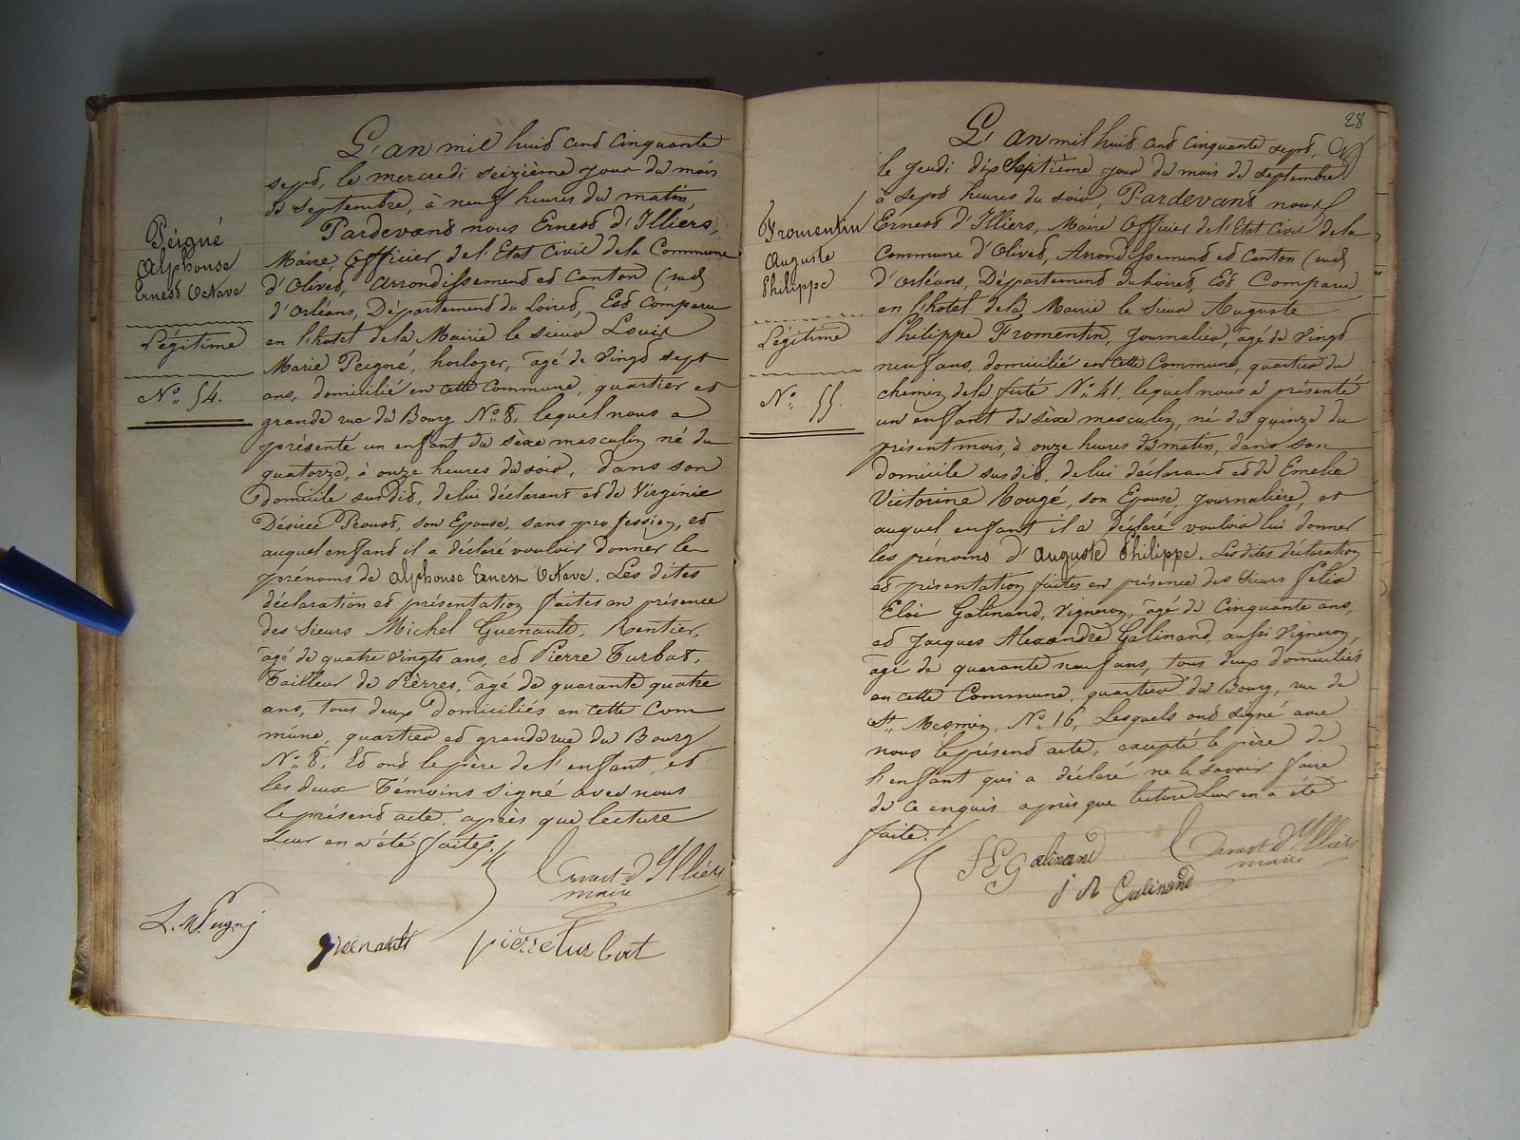 Peigné
Alphonse
Ernest Octave
Légitime
No. 54.
L'an mil huit cent cinquante
sept, le mercredi seizième jour du mois
de septembre, à neuf heures du matin,
Pardevant nous Ernest d'Illiers,
Maire, Officier de l'Etat Civil de la Commune
d'Olivet, Arrondissement et Canton (sud)
d'Orléans, Département du Loiret, Est Comparu
en l'hotel de la Mairie le sieur Louis
Marie Peigné, horloger, âgé de vingt sept
ans, domicilié en cette Commune, quartier et
grande rue du Bourg No. 8, lequel nous a
présenté un enfant du sèxe masculin, né du
quatorze, à onze heures du soir, dans son
domicile susdit, de lui déclarant et de Virginie
Désirée Proust, son Epouse, sans profession, et
auquel enfant il a déclaré vouloir donner les
prénoms de Alphonse Ernest Octave. Les dites
déclaration et présentation faites en présence
des Sieurs Michel Guenault, Rentier,
âgé de quatre vingts ans, et Pierre Turbat,
Tailleur de Pierres, âgé de quarante quatre
ans, tous deux domiciliés en cette Com
mune, quartier et grande rue du Bourg
No. 8. Et ont le père de l'enfant et
les deux Témoins signé avec nous
le présent acte, après que lecture
Leur en a été faite.
Ernest d'Illiers
maire
guenault
pierre turbat
28
Fromentin
Auguste
Philippe
Légitime
No. 55.
L'an mil huit cent cinquante sept,
le jeudi dix Septième jour du mois de septembre
à sept heures du soir, Pardevant nous
Ernest d'Illiers, Maire Officier de l'Etat Civil de la
Commune d'Olivet, Arrondissement et Canton (sud)
d'Orléans, Département du Loiret, Est Comparu
en l'hotel de la Mairie le Sieur Auguste
Philippe Fromentin, Journalier, âgé de vingt
neuf ans, domicilié en cette Commune, quartier du
chemin de la ferté No. 41, lequel nous a présenté
un enfant du sèxe masculin, né du quinze du
présent mois, à onze heures du matin, dans son
domicile susdit, de lui déclarant et de Emelie
Victorine Rougé, son Epouse, journalière, et
auquel enfant il a Déclaré vouloir lui donner
les prénoms d'Auguste Philippe. Les dites déclaration
et présentation faites en présence des Sieurs Felix
Eloi Galinand, Vigneron, âgé de Cinquante ans,
et Jacques Alexandre Galinand, aussi Vigneron,
âgé de quarante neuf ans, tous deux domiciliés
en cette Commune, quartier du Bourg, rue de
St. Mesmin, No. 16, Lesquels ont signé avec
nous le présent acte, excepté le père de
l'enfant qui a déclaré ne le savoir faire
de ce enquis après que lecture Leur en a été
faite.
Galinand
Ernest d'Illiers
maire
j A Galinand